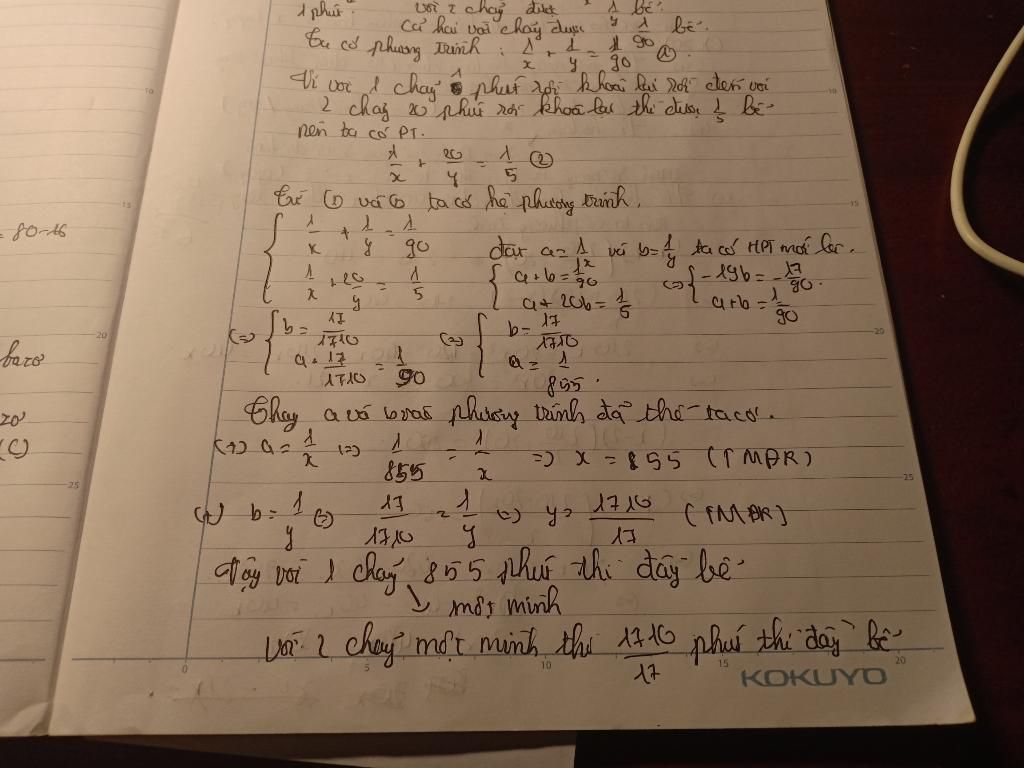 1 phút vòi 2 chảy được 1/y bể.
Cả hai vòi chảy được 1/90 bể.
Ta có phương trình : 1/x + 1/y = 1/90 (1)
Vì vòi 1 chảy 1 phút rồi khoá lại rồi đến vòi
2 chảy 20 phút rồi khoá lại thì được 1/5 bể
nên ta có PT.
1/x + 20/y = 1/5 (2)
Từ (1) và (2) ta có hệ phương trình.
{ 1/x + 1/y = 1/90
{ 1/x + 20/y = 1/5
đặt a = 1/x và b = 1/y ta có HPT mới là.
{ a + b = 1/90 <=> { -19b = -17/90.
{ a + 20b = 1/5 { a+b = 1/90
<=> { b = 17/1710 <=> { b = 17/1710
{ a + 17/1710 = 1/90 { a = 1/855.
Thay a và b vào phương trình đã thế ta có.
(+) a = 1/x => 1/855 = 1/x => x = 855 (TMĐK)
(+) b = 1/y <=> 17/1710 = 1/y <=> y = 1710/17 (TMĐK)
Vậy vòi 1 chảy 855 phút thì đầy bể
một mình
vòi 2 chảy một mình thì 1710/17 phút thì đầy bể
= 80-16
(C)
10
15
20
25
10
15
20
25
0
5
10
15
20
KOKUYO